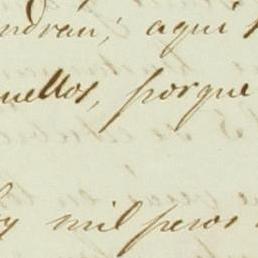 ndran; aqui
uellos, porque
mil pesos